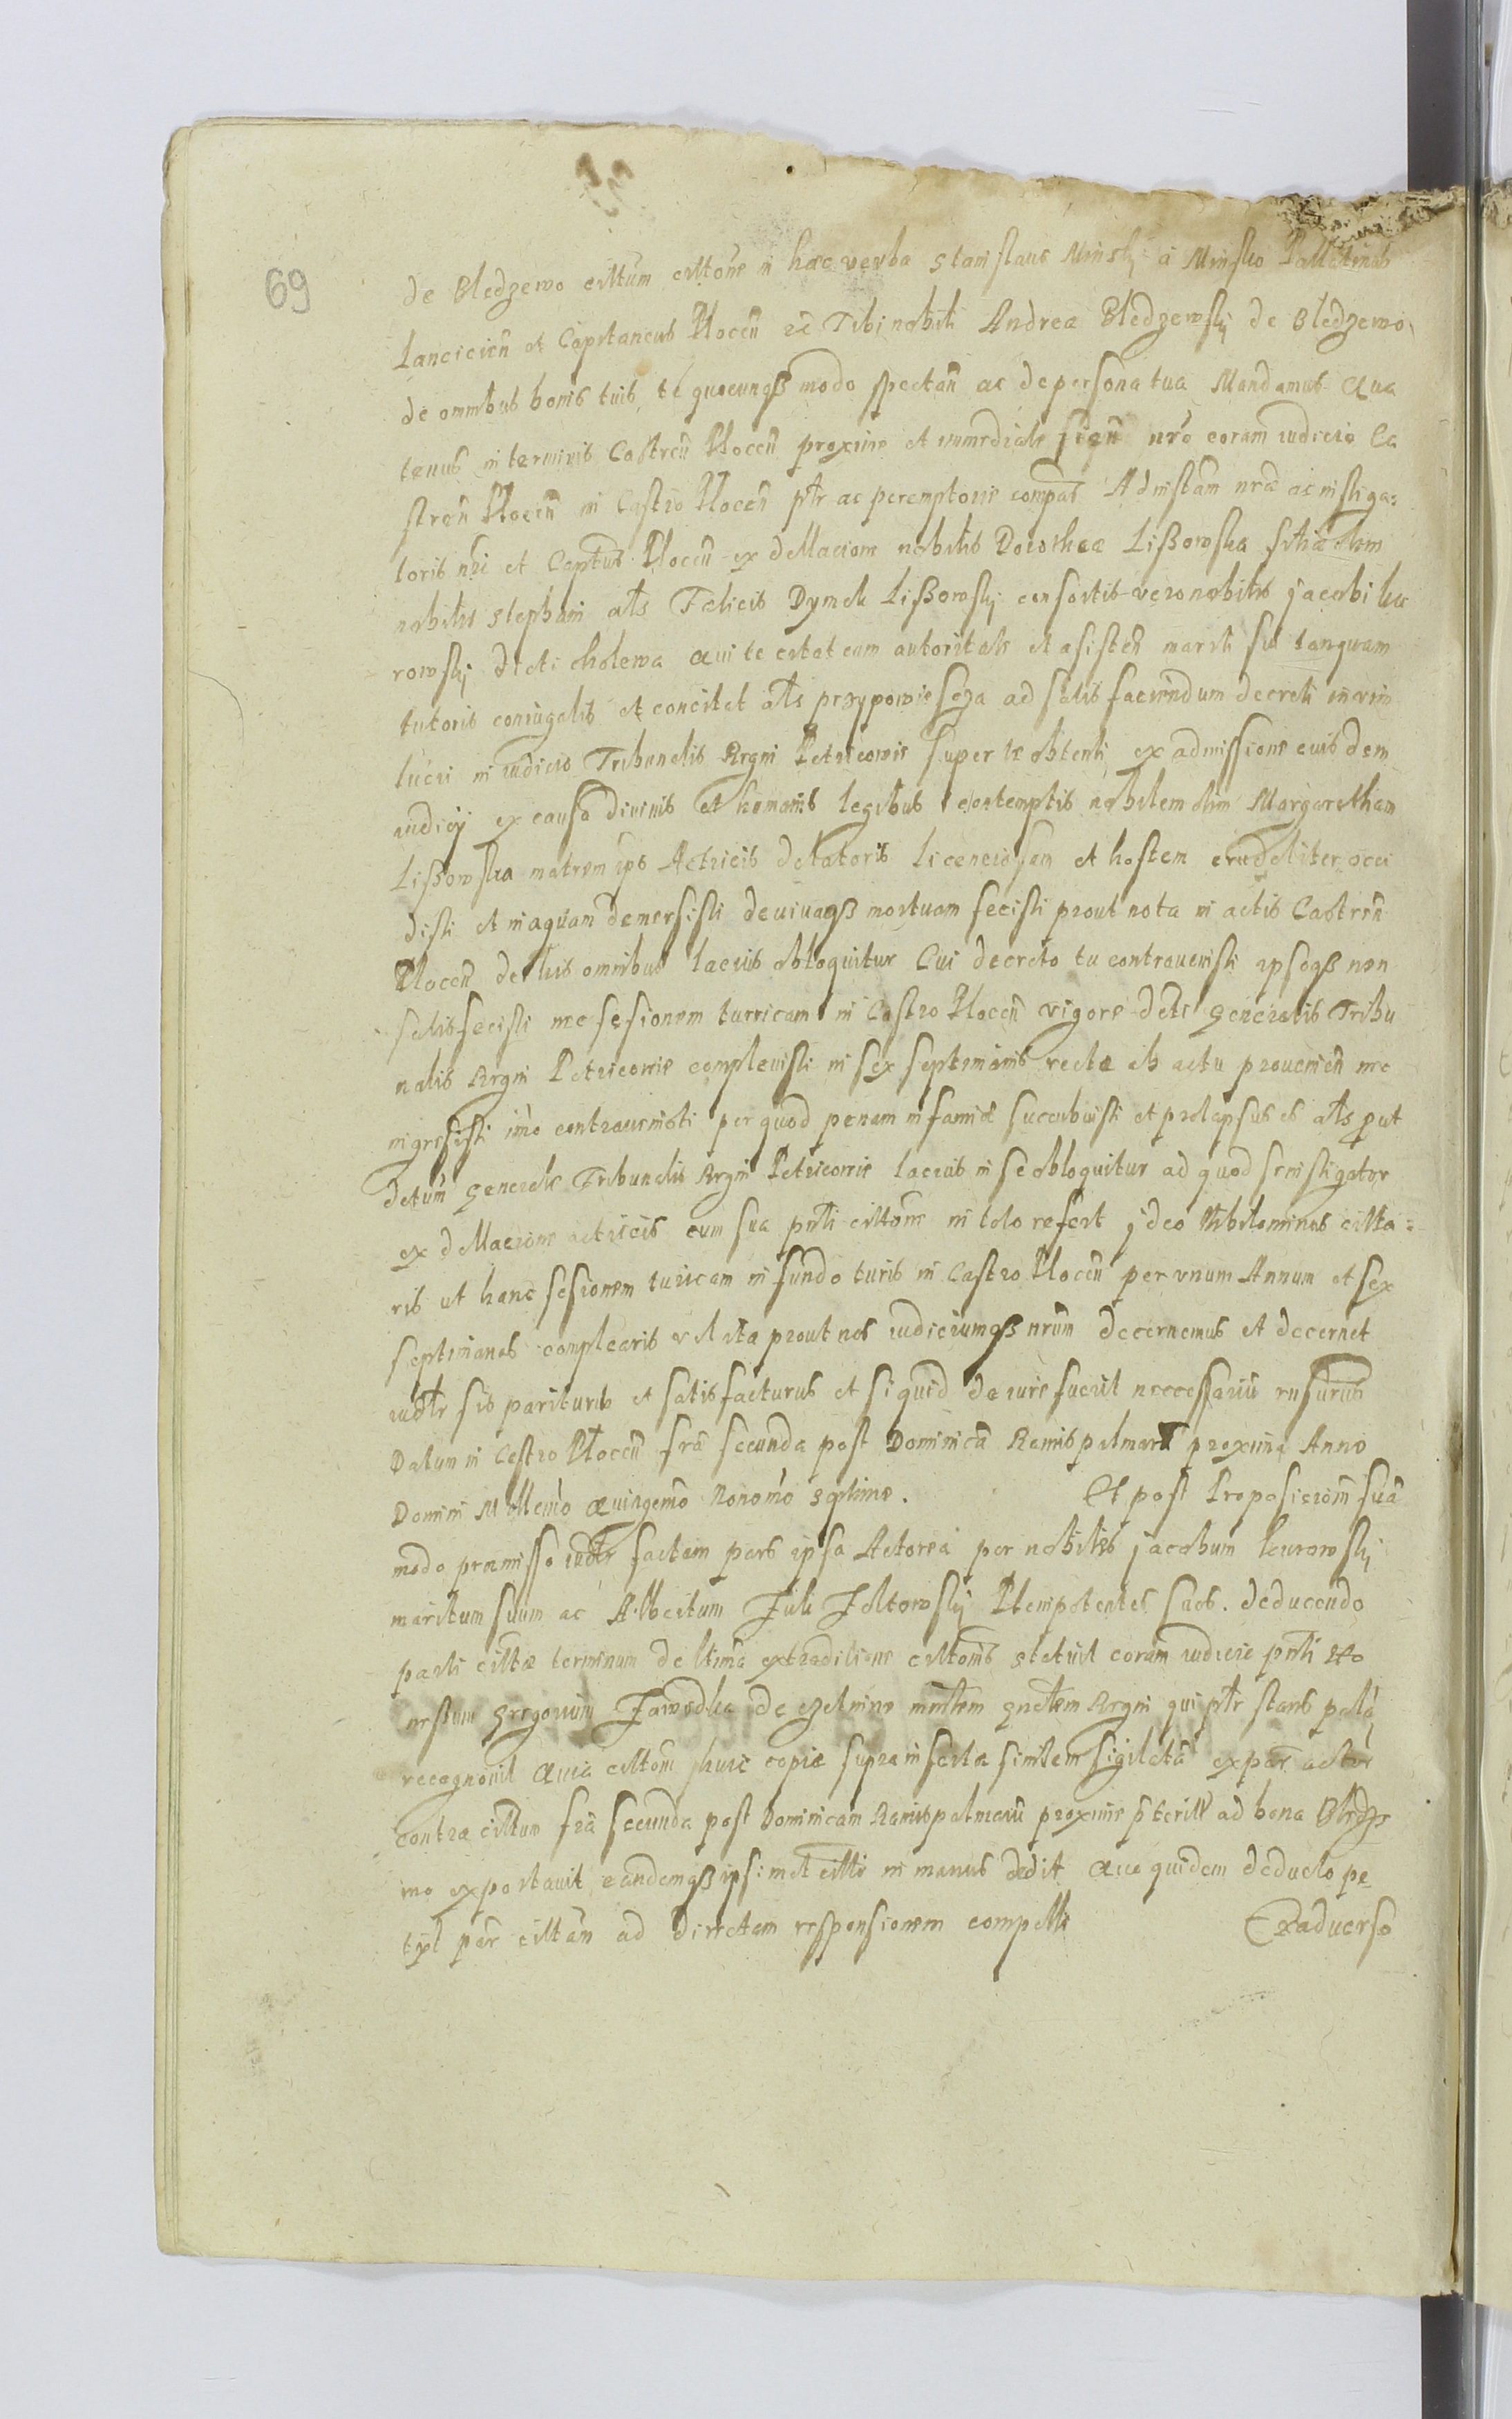 69
de Bledzewo cittum cittone in hæc verba Stanislaus Minsky a Minsko Pallatinus
Lancicien et Capitaneus Plocen &c Tibi nobili Andreæ Bledzewsky de Bledzewo
de omnibus bonis tuis te quocunqß modo spectan ac de persona tua Mandamus Qua
tenus in terminis Castren Plocen proxime et immediate seqn nro coram iudicio Ca
stren Plocen in Castro Plocen ptr ac peremptorie compas Ad instam nræ ac instiga=
toris nri et Captus Plocen ex dellacione nobilis Dorotheæ Lißowska filiæ olim
nobilis Stephani als Felicis Dymek Lißowsky consortis vero nobilis Jacobi ku
rowsky dicti cholewa Qui te citat cum autoritate et asisten mariti sui tanquam
tutoris coniugalis et concitat als przypowiescza ad satis faciendum decreti in vim
lucri in iudicio Tribunalis Regni Petricovie super te obtenti ex admissione euisdem
iudicij ex causa divinis et homanis legibus contemptis nobilem olim Margaretham
Lißowska matrem ips Actricis delatoris licenciosam et hosten crudeliter occi
disti et in aquam demersisti de vivaqß mortuam fecisti prout nota in actis Castren
Plocen de his omnibus lacius obloquitur Cui decreto tu contravenisti ipseqß non
satisfecisti nec sesionem turricam in Castro Plocen vigore decti Generalis Tribu
nalis Regni Petricovie complevisti in sex septimanis recte ab actu provenien nec
ingresisti imo contravenisti per quod penam infamiæ succubuisti et prolapsus es als put
detum Generale Tribunalis Regni Petricovie lacius in se obloquitur ad quod se instigator
ex dellacione actricis cum sua pnti cittone in toto refert Ideo Nihilominus citta=
ris ut hanc sesionem turicam in fundo turis in Castro Plocen per unum Annum et sex
septimanas complearis vel ita prout nos iudiciumqß nrum decernemus et decernet
iudtr sis pariturus et satisfacturus et si quid de iure fuerit neccessariu rnsurus
Datum in Castro Plocen fra secunda post Dominica Ramis palmaru proxima Anno
Domini Millemo Quingemo Nonomo septimo. Et post Proposicionem sua
modo præmisso iudtr factam pars ipsa Actorea per nobiles Jacobum kurowsky
maritum suum ac Albertum Juli Zoltowsky Plenipotentes suos. deducendo
parti cittæ terminum de ltima extradicione cittonis statuit coram iudicio pnti Ho
nestum Gregorium Zawodka de mintem gnalem Regni qui ptr stans pala
recognovit Quia cittone huic copiæ supra inserta similem sigilata ex par actor
contra cittum fra secunda post Dominicam Ramispalmaru proxime pterita ad bona Bledze
wo exportavit eandemqß ipsimet citto in manus dedit Quo quidem deducto pe
tyt par cittam ad directam responsionem compelli Ex adverso